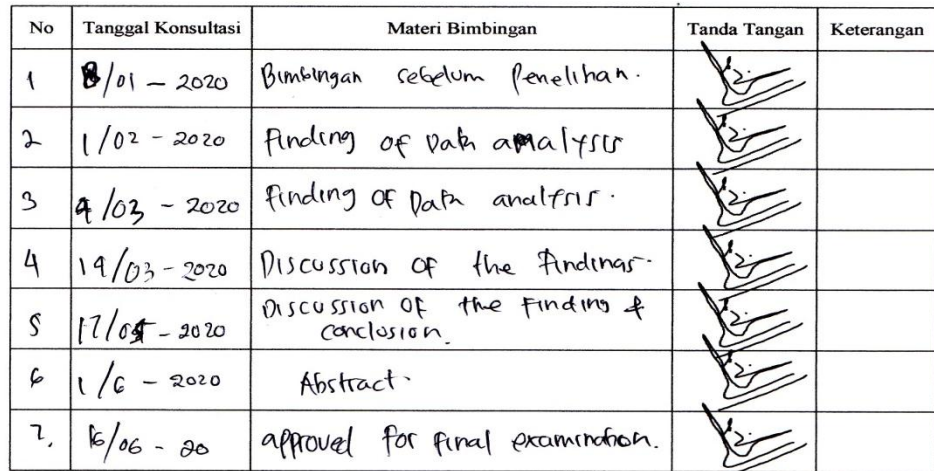 No Tanggal Konsultasi Materi Bimbingan Tanda Tangan Keterangan
1 8/01 - 2020 Bimbingan sebelum Penelitian.
2 1/02 - 2020 Finding of Data analysis
3 4/03 - 2020 Finding of Data analysis.
4 19/03 - 2020 Discussion of the Findings.
5 17/05 - 2020 Discussion of the Finding &
conclusion.
6 1/6 - 2020 Abstract.
7. 16/06 - 20 approved for final examination.